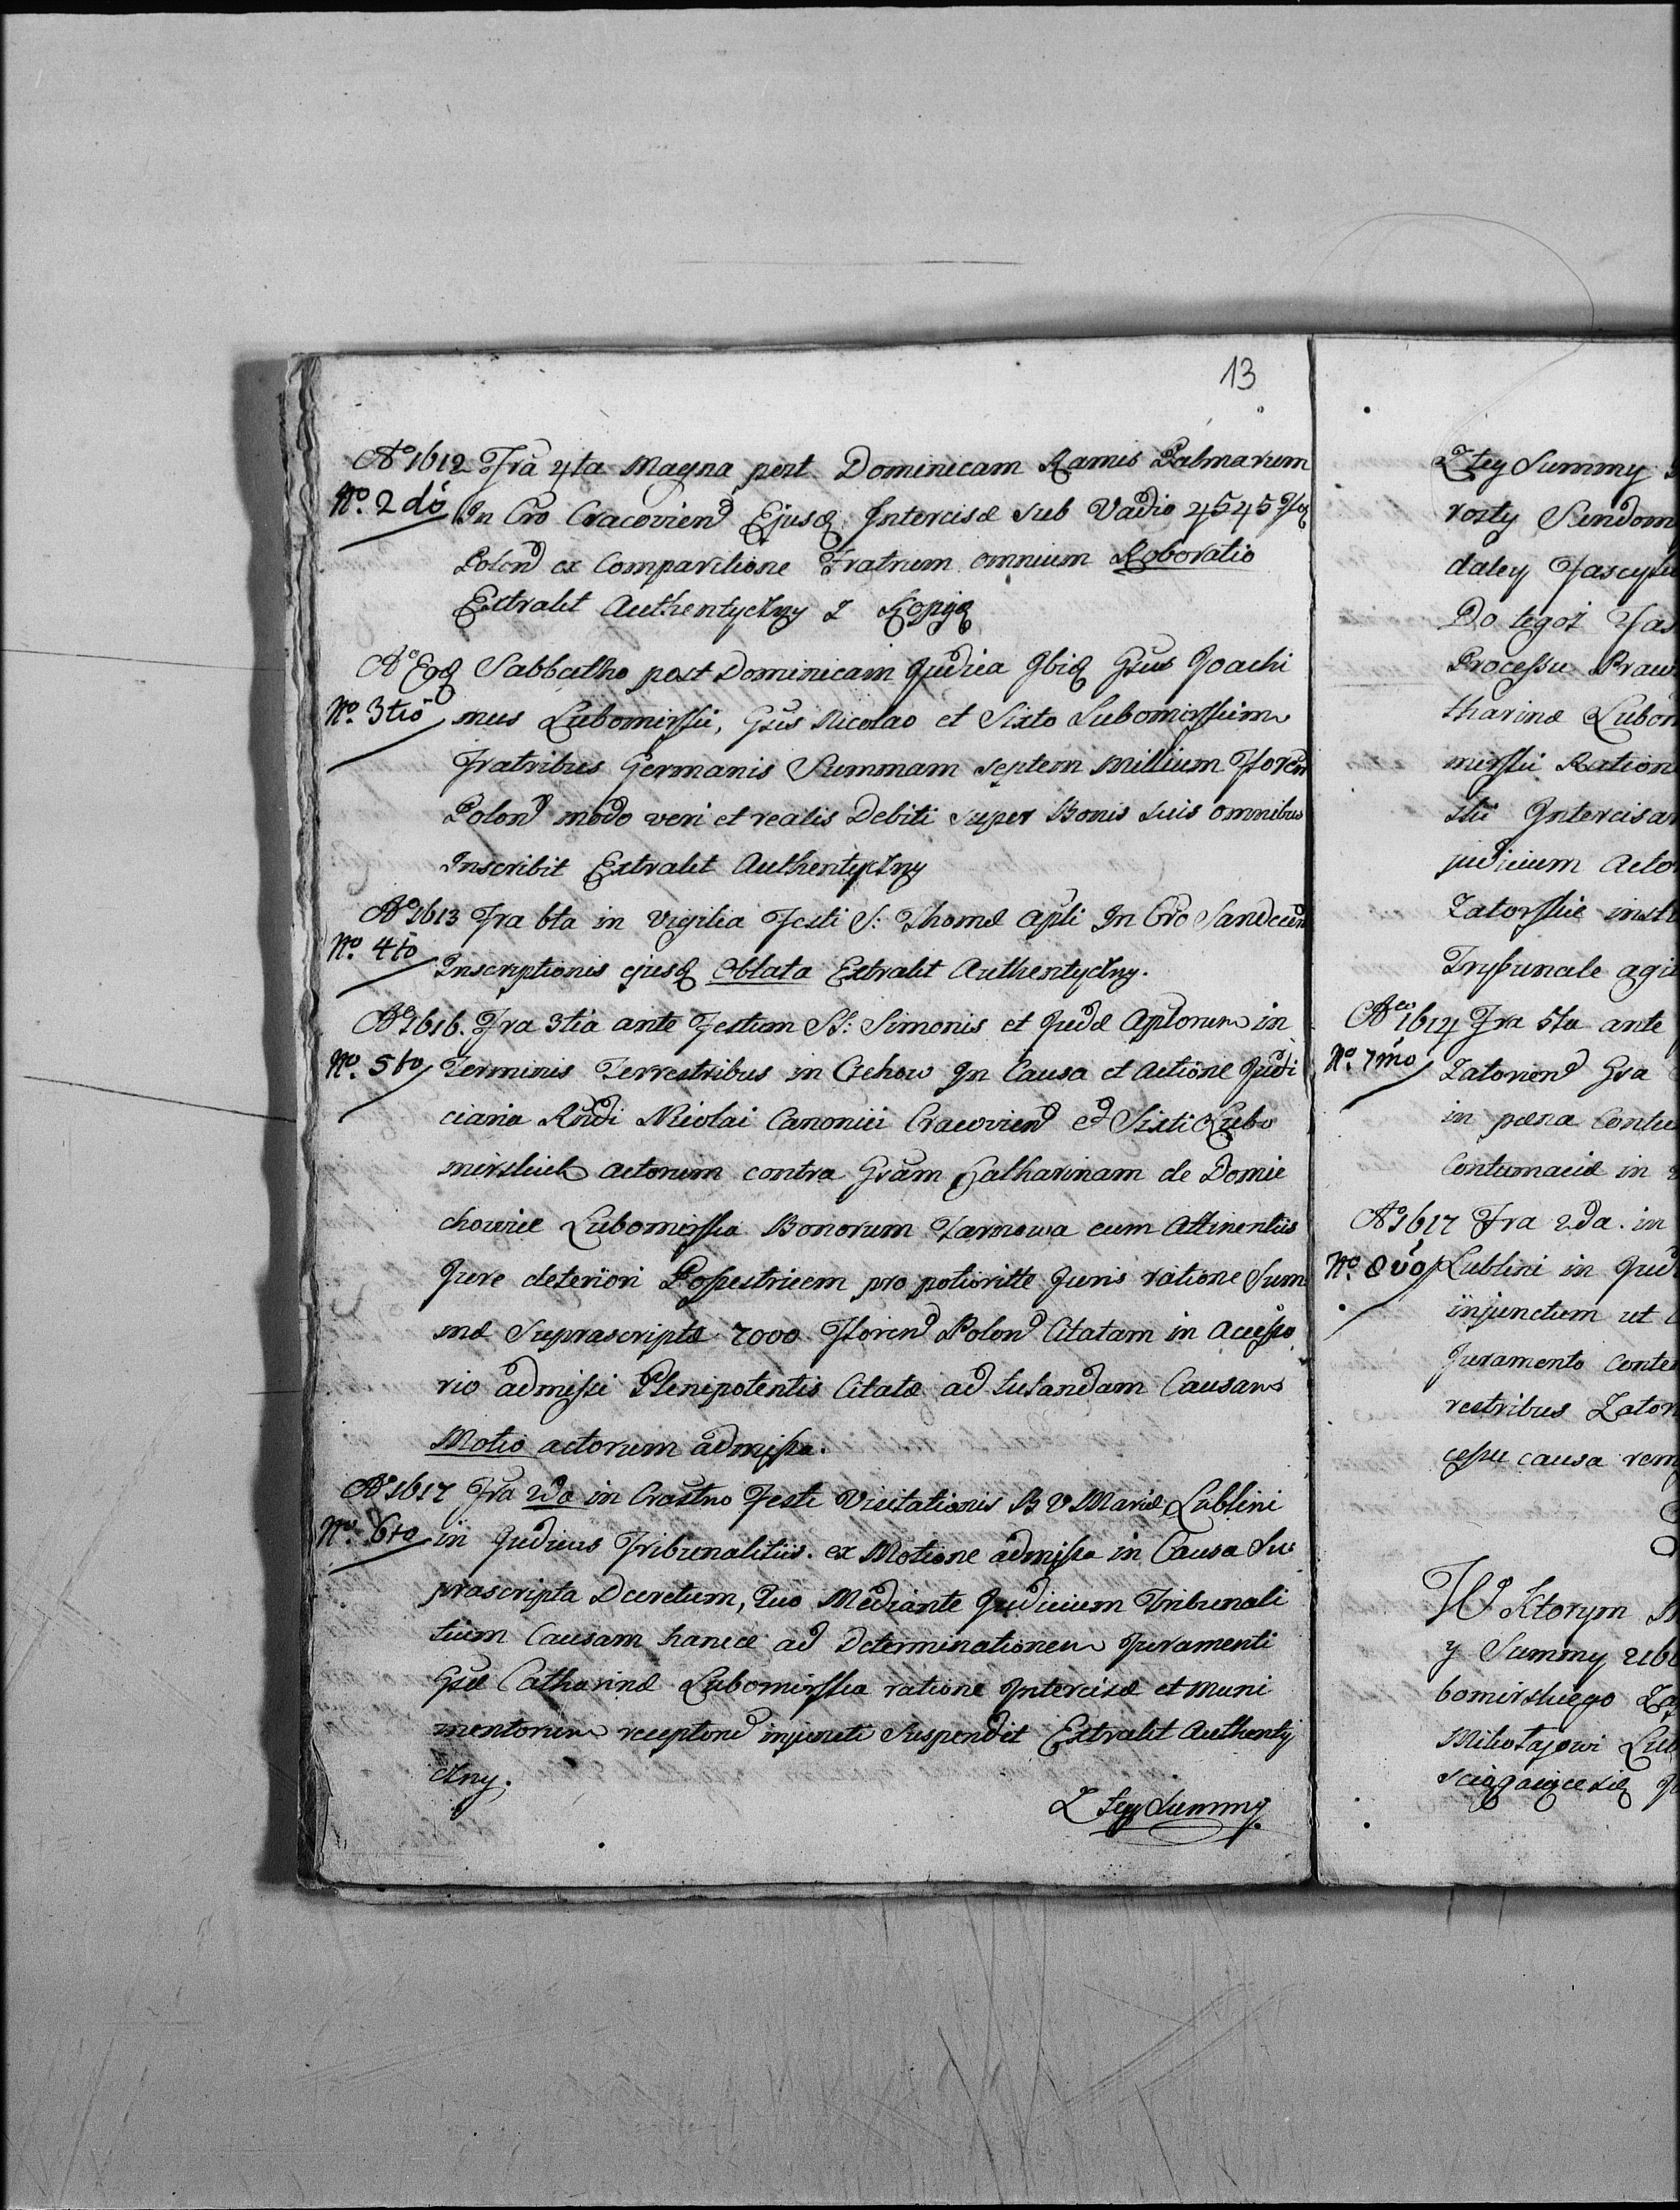 13
Ao 1612 Fra 4ta Magna post Dominicam Ramis Palmarum
No. 2do In Cro Cracovien Ejusq Intercisæ sub Vadio 4545 Flor
Polon ex Comparitione Fratrum omnium Roboratio
Extrakt Authentyczny z Kopyą
Ao Eoq Sabbatho post Dominicam Judica Ibiq Gsus Joachi
No. 3tio mus Lubomirski, Gsis Nicolao et Sixto Lubomirskim
Fratribus Germanis Summam septem millium Floren
Polon modo veri et realis Debiti super Bonis suis omnibus
Inscribit Extrakt Authentyczny
Ao 1613 Fra 6ta in Vigilia Festi S: Thomæ Apli In Cro Sandecen
No. 4to Inscriptionis ejusq Oblata Extrakt Authentyczny.
Ao 1616. Fra 3tia ante Festum SS: Simonis et Judæ Aplorum in
No. 5to Terminis Terrestribus in Czchow In Causa et Actione Judi
ciaria Rndi Nicolai Canonici Cracovien et Sixti Lubo
mirskich actorum contra Gsam Catharinam de Domie
chowice Lubomirska Bonorum Tarnowa cum Attinentiis
Jure deteriori Possestricem pro potioritte Juris ratione Sum
mæ Suprascriptæ 7000 Floren Polon Citatam in Accesso
rio admissi Plenipotentis Citatæ ad tutandam Causam
Motio actorum admissa.
Ao 1617 Fra 2da in Crastino Festi Visitationis B V Mariæ Lublini
No. 6to in Judiciis Tribunalitiis. ex Motione admissa in Causa Su
prascripta Decretum, Quo Mediante Judicium Tribunali
tium Causam hance ad Determinationem Juramenti
Gsæ Catharinæ Lubomirska ratione Intercisæ et muni
mentorum recepton injuncti Suspendit Extrakt Authenty
czny.
Z tey Summy.
Z tey Summy
rosty Sendom
daley Fascyku
Do tegoż Fas
Processu Praw
tharinæ Lubom
mirski Ration
ski Intercisam
judicium Acto
Zatorskie insti
Trybunale agi
Ao 1614 Fra 5ta ante
No. 7mo Zatorien Gsa
in pæna Contu
Contumaciæ in
Ao 1617 Fra 2da. in
No. 8vo Lublini in Jud
injunctum ut
Juramento Conte
restribus Zator
cessu causa rem
W Ktorym
y Summy
bomirskiego
Mikołajowi Lub
sciągaiące się